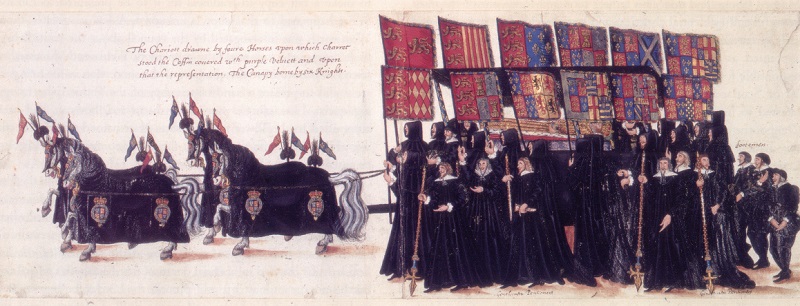 The Chariott drawne by foure Horses vpon which Charret
stood the Coffin couered wth purple Veluett and vpon
that the representation, The Canapy borne by six Knights.